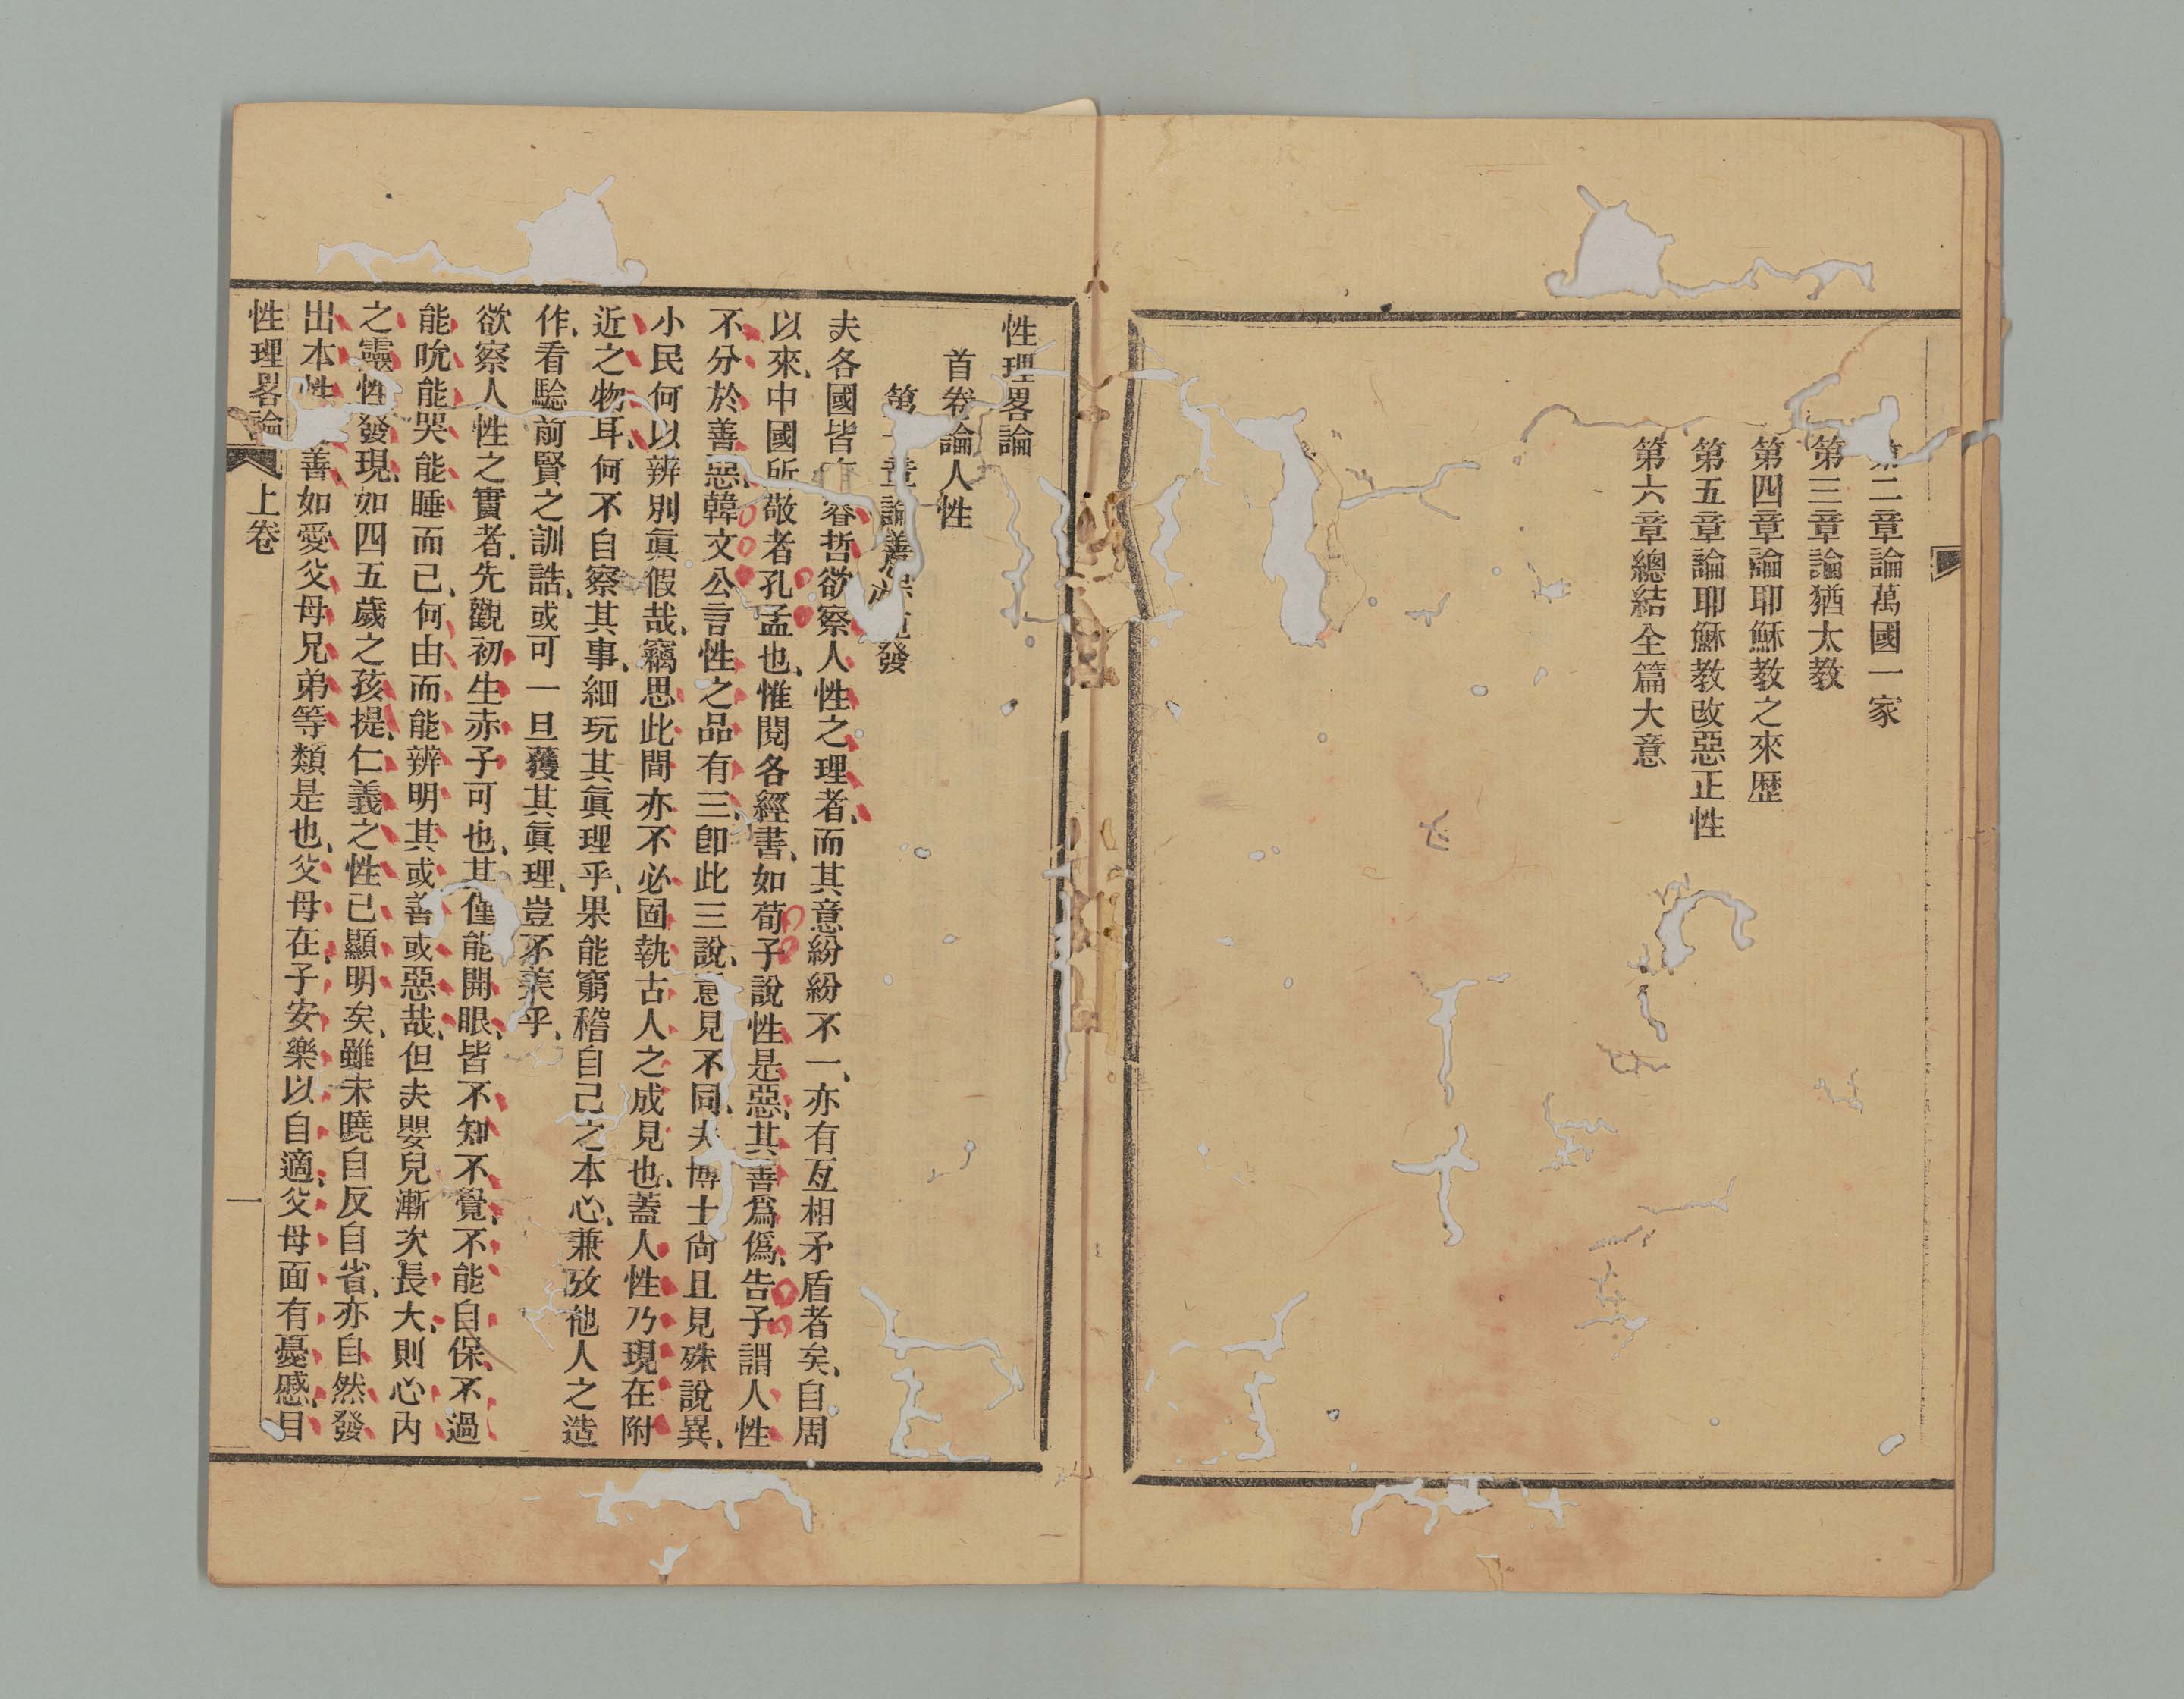 第二章論萬國一家
第三章論猶太教
第四章論耶穌教之來歴
第五章論耶穌教改惡正性
第六章總結全篇大意
性理畧論
首卷論人性
第章論善發
夫各國皆睿哲欲察人性之理者、而其意紛紛不一、亦有亙相矛盾者矣、自周
以來、中國所敬者孔孟也、惟閱各經書、如荀子說性是惡、其善爲僞、告子謂人性
不分於善惡、韓文公言性之品有三、卽此三說、意見不同、夫博士尙且見殊說異、
小民何以辨別眞假哉、竊思此間亦不必固執古人之成見也、蓋人性乃現在附
近之物耳、何不自察其事、細玩其眞理乎、果能窮稽自己之本心、兼攷他人之造
作、看騐前賢之訓誥、或可一旦獲其眞理、豈不美乎、
欲察人性之實者、先觀初生赤子可也、其僅能開眼、皆不知不覺、不能自保、不過
能吮能哭能睡而已、何由而能辨明其或善或惡哉、但夫嬰兒漸次長大、則心內
之靈性發現、如四五歲之孩提、仁義之性已顯明矣、雖未曉自反自省、亦自然發
出本性善、如愛父母兄弟等類是也、父母在、子安樂以自適、父母面有憂慼、目
性理畧論 上卷 一